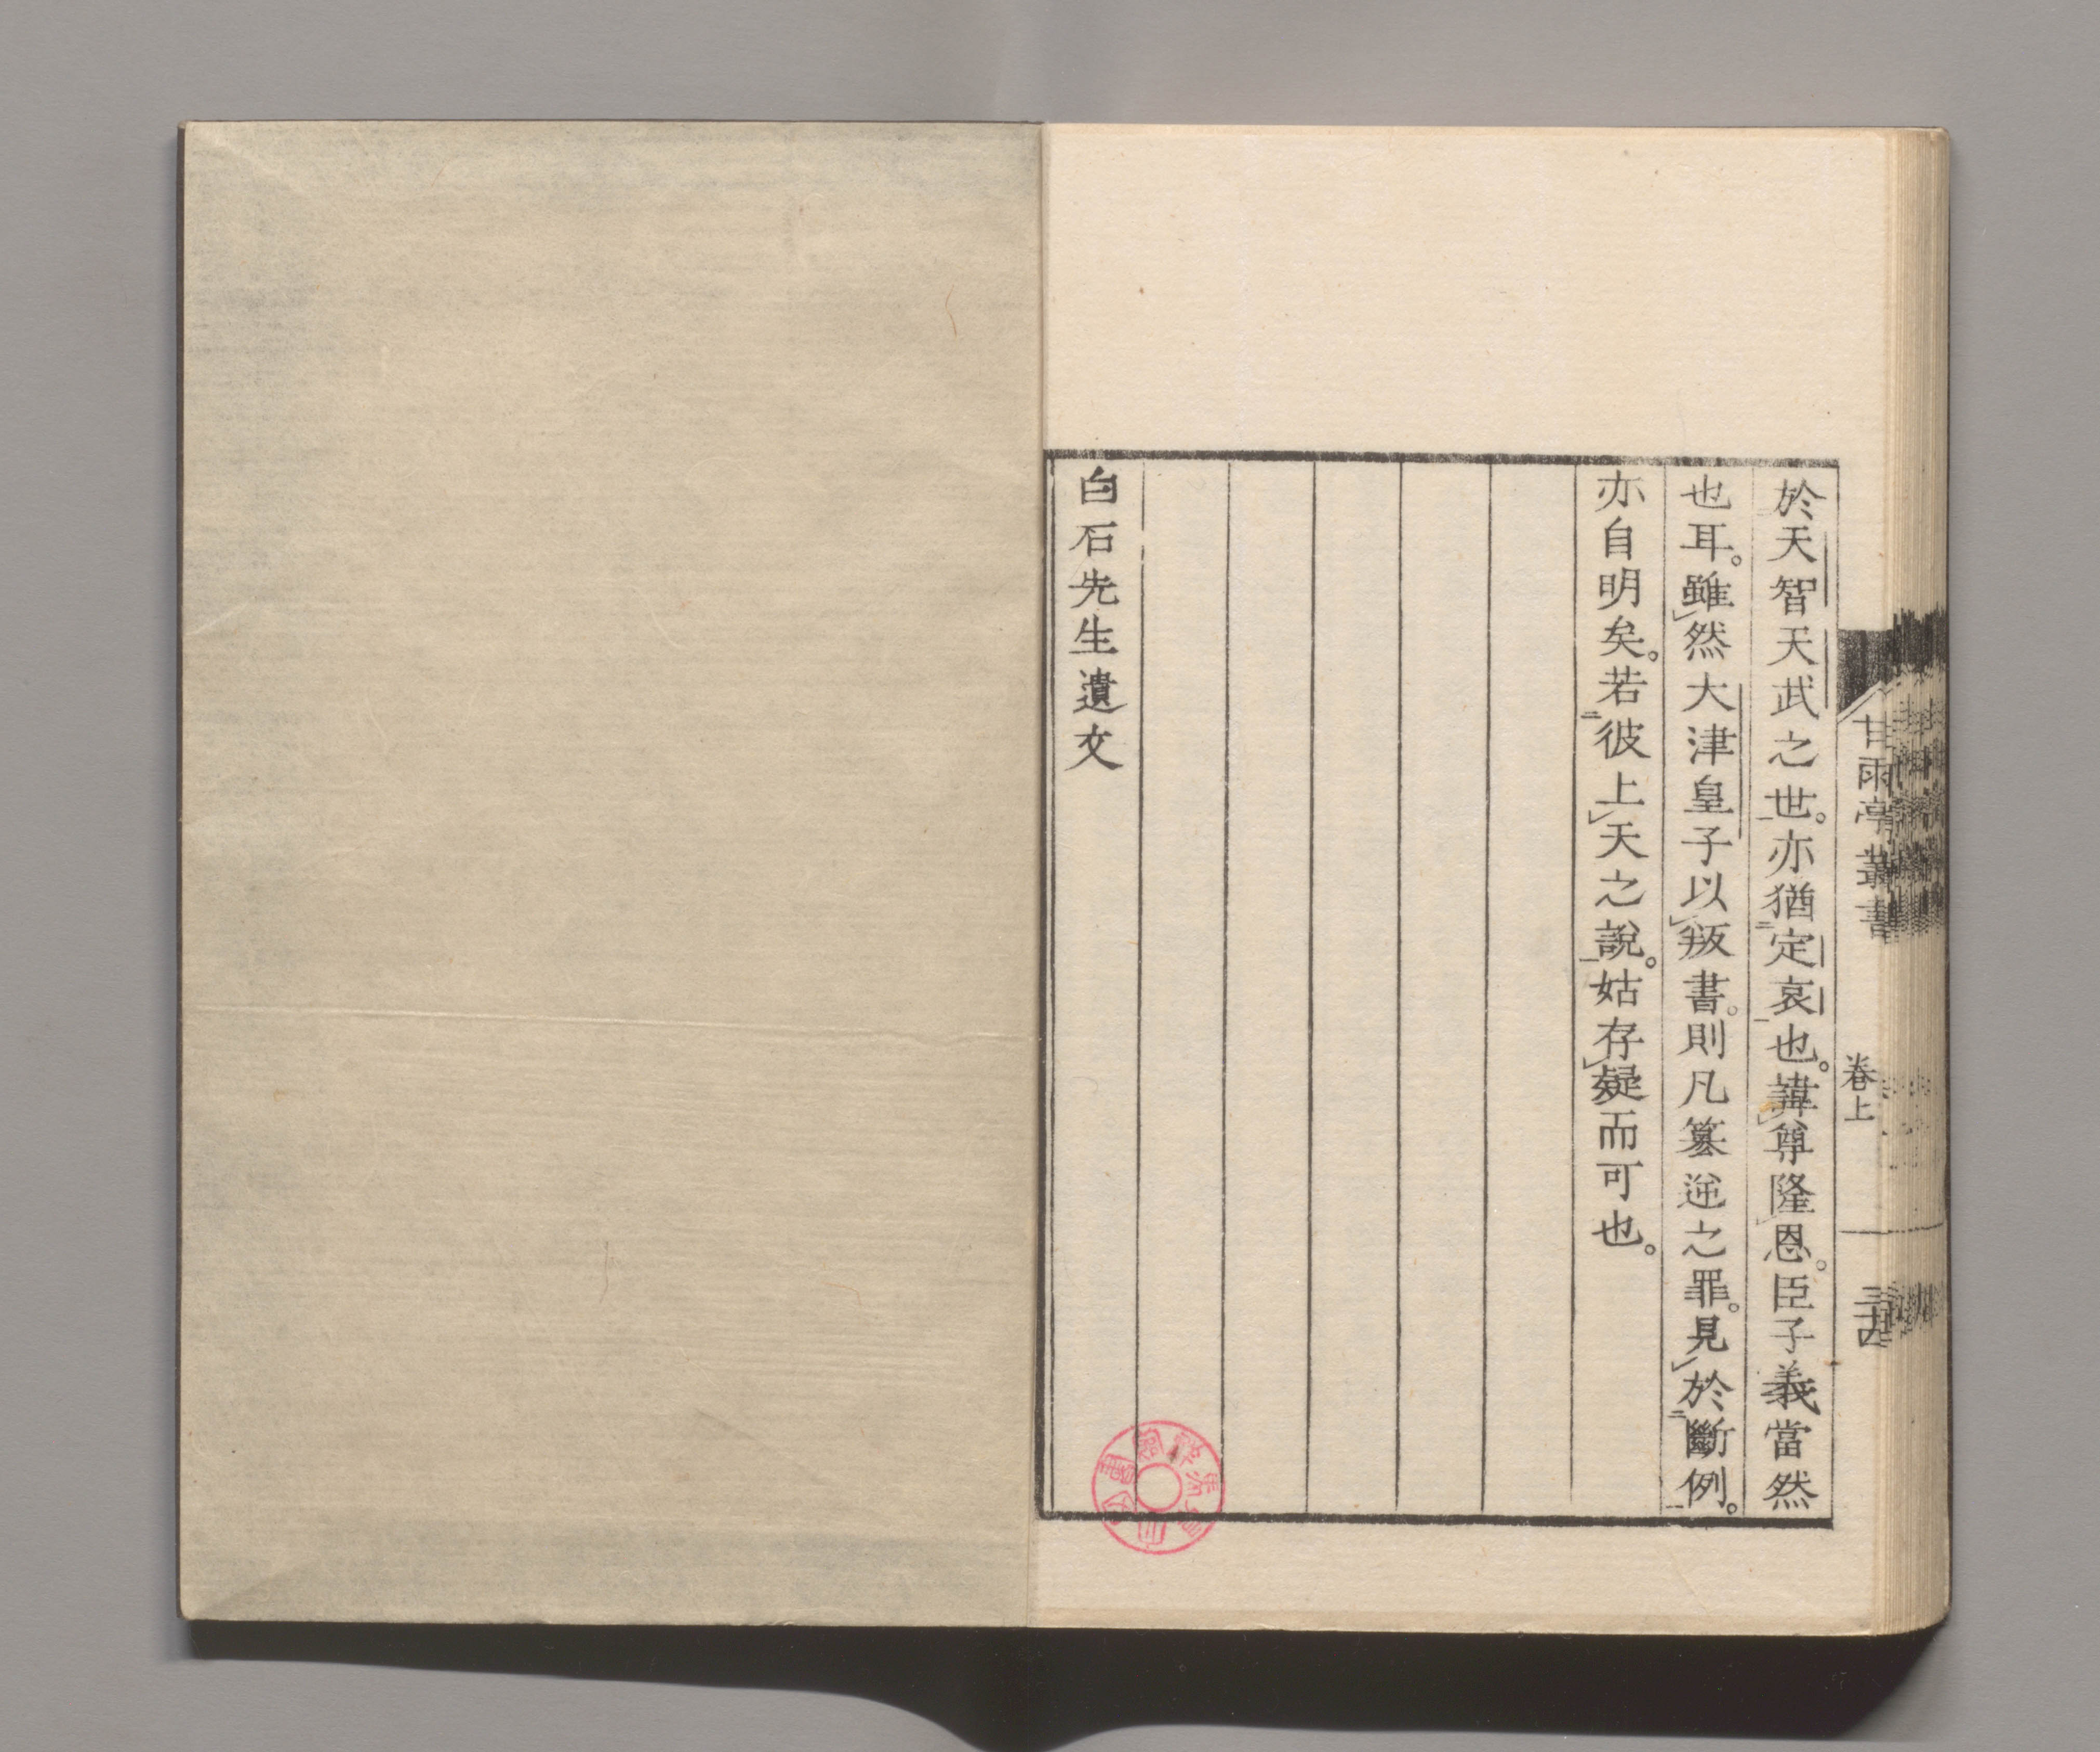 於天智天武之世。亦猶定哀也。諱尊隆恩。臣子義當然
也耳。雖然大津皇子以叛書。則凡簒逆之罪。見於斷例。
亦自明矣。若彼上天之說。姑存疑而可也。
白石先生遺文
甘雨亭叢書
卷上
三十四